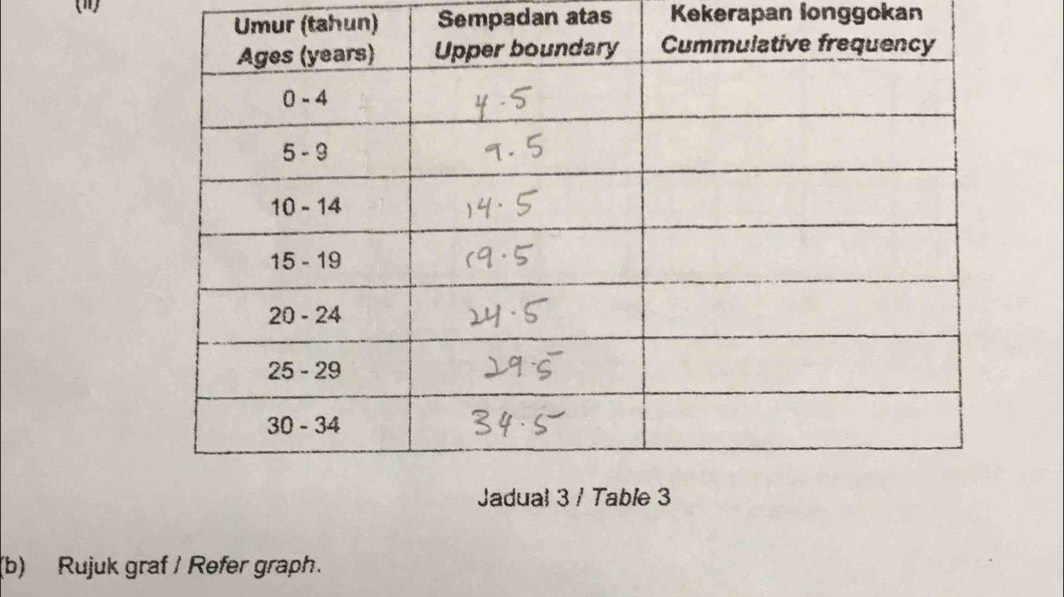 (ii)
Umur (tahun) Sempadan atas Kekerapan longgokan
Ages (years) Upper boundary Cummulative frequency
0 - 4 4.5
5 - 9 9.5
10 - 14 14.5
15 - 19 19.5
20 - 24 24.5
25 - 29 29.5
30 - 34 34.5
Jadual 3 / Table 3
(b) Rujuk graf / Refer graph.